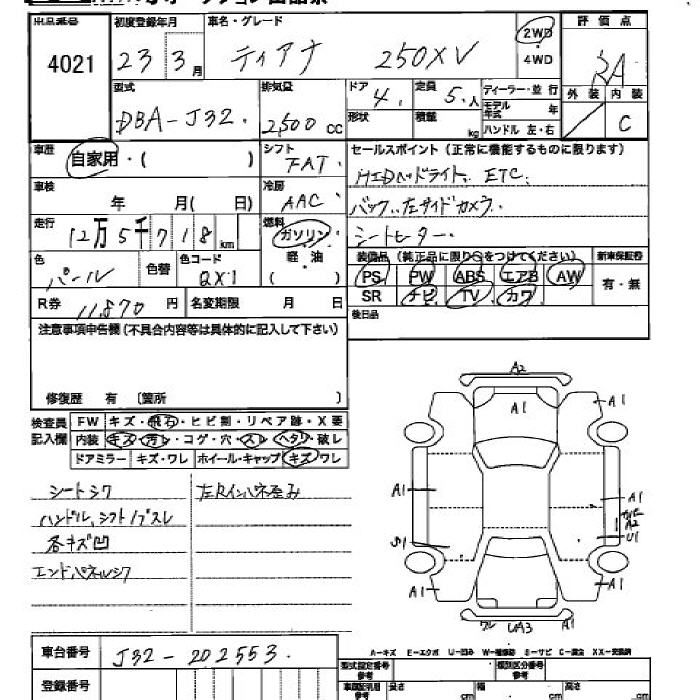 出品番号 初度登録年月 車名・グレード 評価点
4021 23 3月 ティアナ 250XV 2WD・4WD RA
型式 排気量 ドア 定員 ディーラー・並行 外装 内装
DBA-J32. 2,500cc 4. 5.人 モデル年式 年 C
形状 積載 kg ハンドル 左・右
車歴 自家用・( ) シフト FAT. セールスポイント(正常に機能するものに限ります)
車検 年 月( 日) 冷房 AAC. HIDヘッドライト. ETC.
走行 12万5千718km 燃料 ガソリン 軽・油 ( ) バック、左サイドカメラ.
シートヒーター.
色 パール 色替 色コード QX1 装備品(純正品に限り○をつけてください) 新車保証書
PS PW ABS エアB AW 有・無
R券 11,870円 名変期限 月 日 SR ナビ TV カワ
注意事項申告欄(不具合内容等は具体的に記入して下さい) 後日品
修復歴 有 〔箇所 〕
検査員記入欄 FW キズ・飛石・ヒビ割・リペア跡・X要
内装 キズ・汚レ・コゲ・穴・スレ・ヘタリ・破レ
ドアミラー キズ・ワレ ホイール・キャップ キズ・ワレ
シートシワ 左Rインパネ歪み
ハンドル、シフトノブスレ
各キズ凹
エンドパネルシワ
A2
A1 A1
A1 A1
A2
S1 U1
A1 A1
ワレ UA3
車台番号 J32-202553.
A-キズ E-エクボ U-凹み W-補修跡 S-サビ C-腐食 XX-交換済
登録番号 型式指定番号 参考 類別区分番号 参考
長さ cm 幅 cm 高さ cm